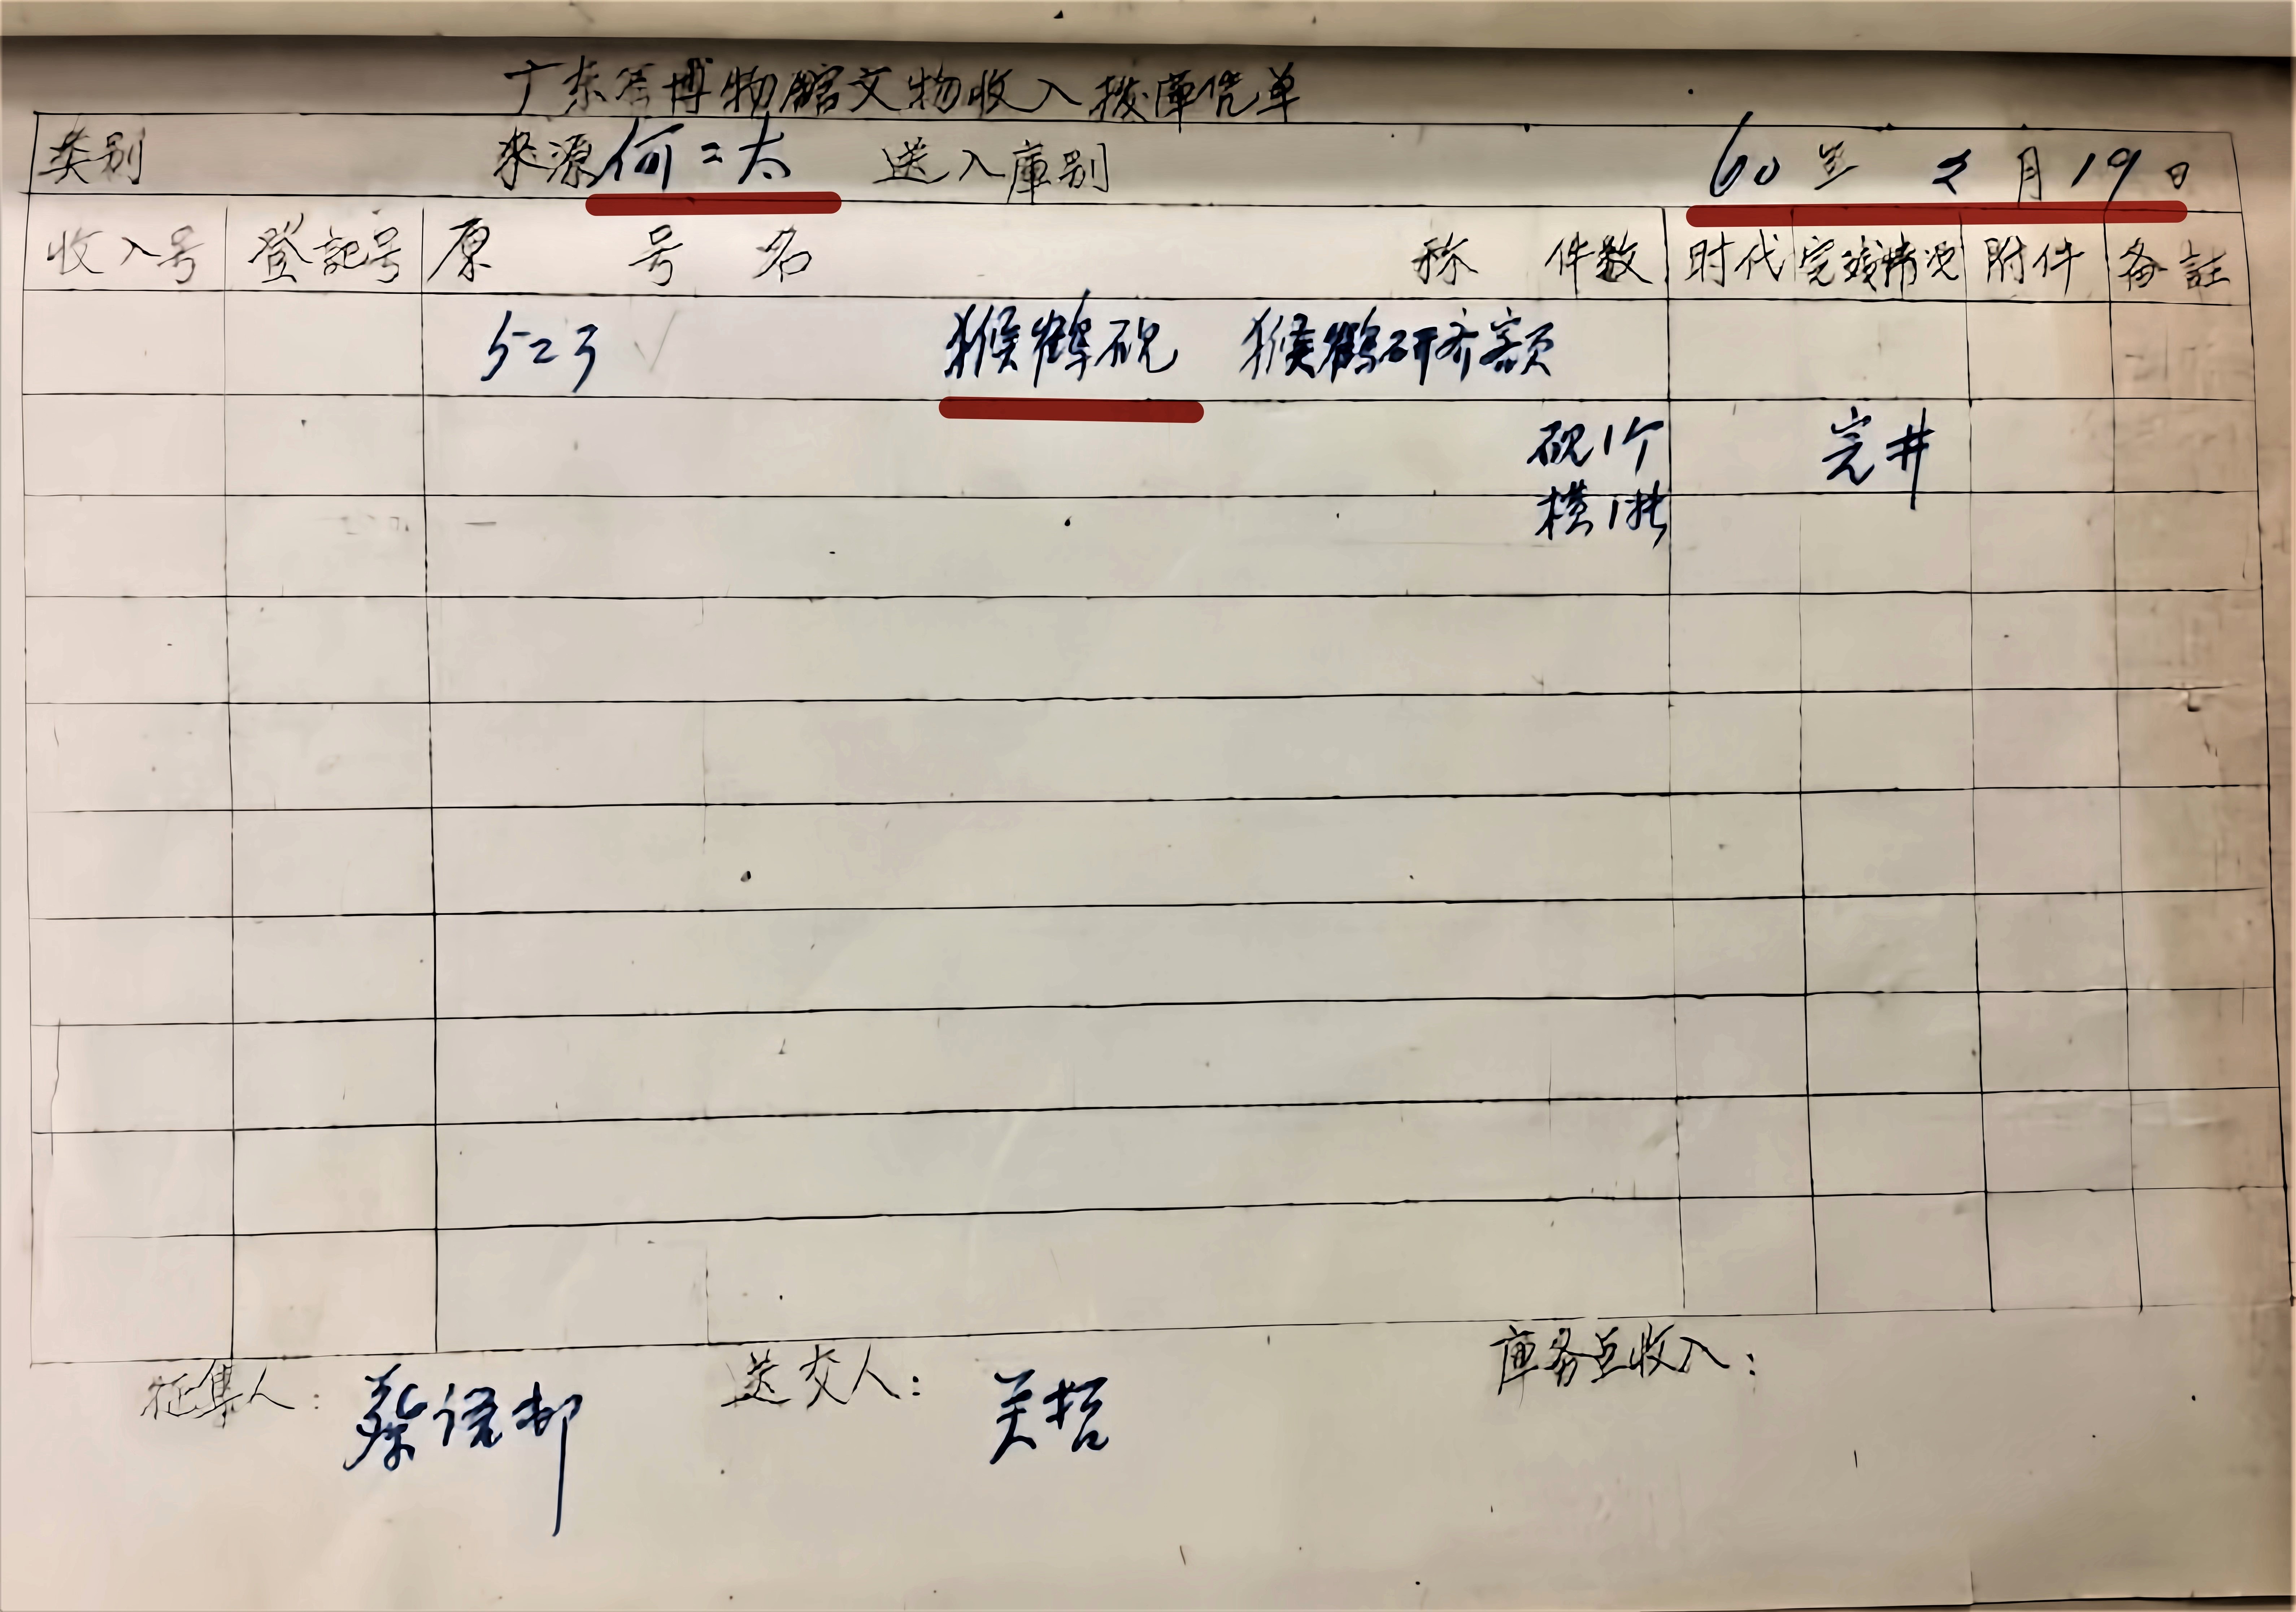 广东省博物館文物收入拨庫凭单
类别 来源 何二太 送入庫别 60年 2月19日
收入号 登記号 原号 名称 件数 时代 完残情况 附件 备註
523 √ 猴鹤砚 猴鹤研斋额
砚1个 完
横1
征集人：蔡语邨 送交人：关哲 庫务点收入：